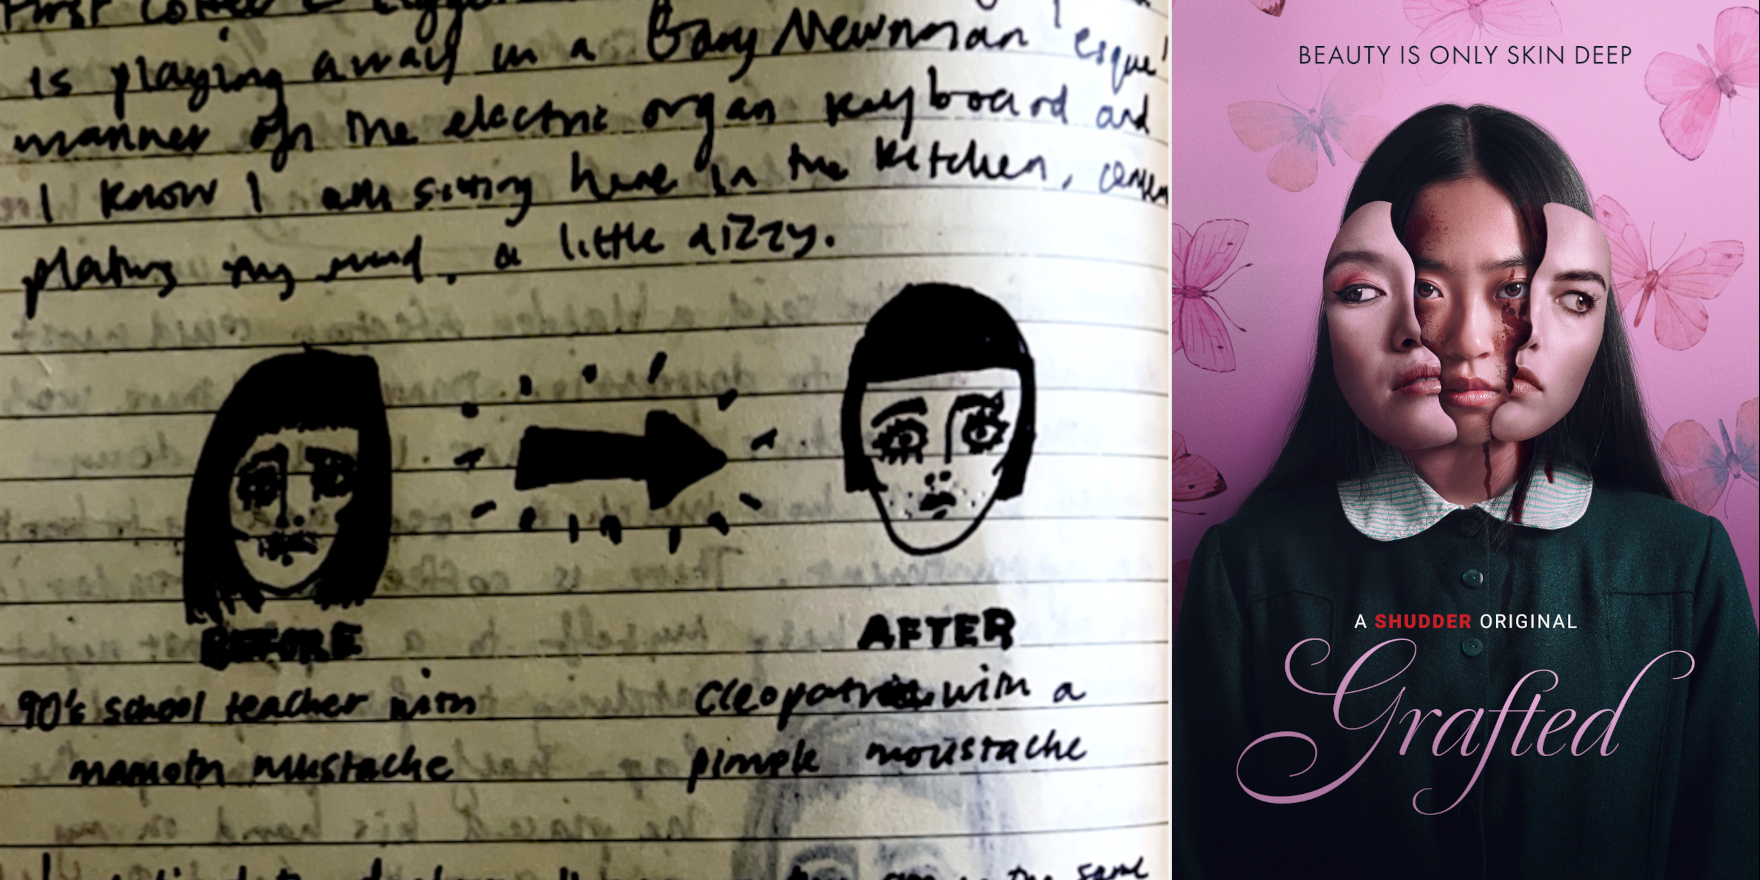 First coffee
is playing away in a Gary Newnman 'esque'
manner on the electric organ keyboard and
I know I am sitting here in the kitchen,
plating my mind, a little dizzy.
BEFORE
AFTER
90's school teacher with
mamoth mustache
Cleopatra with a
pimple moustache
the same
BEAUTY IS ONLY SKIN DEEP
A SHUDDER ORIGINAL
Grafted